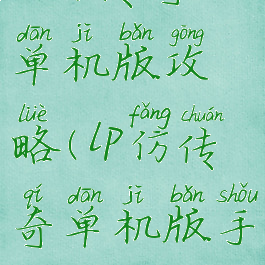 dān jī bǎn gōng
单机版攻
lüè fǎng chuán
略(lp仿传
qí dān jī bǎn shǒu
奇单机版手